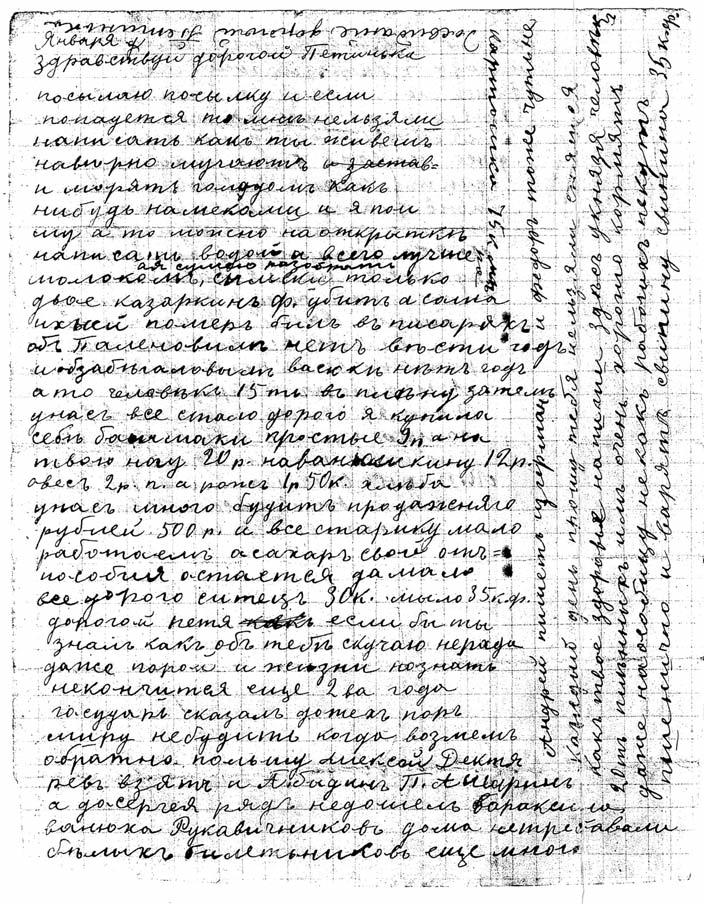 Января 4
здравствуй дорогой Петинька
посылаю посылку и если
попадется то мне нельзяли
написать какъ ты живешъ
навирно мучаютъ и застав=
и морятъ голодомъ какъ
нибудь намеками и я пои
му а то можно наоткрыткѣ
написать водой а всего лучше
ая сумею разобрать
молокомъ, только
двое казаркинъ ф. убитъ а саша
померъ билъ въ писаряхъ
объ нетъ вѣсти годъ
васюки нѣтъ годъ
а то человѣкъ 15ти въ плену затемъ
унасъ все стало дорого я купила
себѣ башмаки простые 9р а на
твою ногу 20 р. наванюшкину 12 р.
овесъ 2р. п. а рожъ 1р 50к хлѣба
унасъ много будитъ продажняго
рублей 500 р. и все старику мало
работаемъ а сахаръ свой отъ=
пособия остается да мало
все дорого ситецъ 30к. мыло 35 к.ф.
дорогой петя какъ если би ты
зналъ какъ объ тебѣ скучаю нерада
даже порой и жизни но знать
некончится еще 2ва года
государь сказалъ дотехъ поръ
миру небудитъ когда возмемъ
обратно польшу алексей Дектя
ревъ взятъ и П. Ашаринъ
а досергея рядъ недошелъ
ванюха Рукавичниковъ дома нетребавали
бѣлихъ билетьниковъ еще много
картошка 75 копъ
Андрей пишетъ изгермании федоръ тоже чутьне
каждый день прошу тебя нельзяли снятся
какъ твое здоровье напиши здѣсъ укнязя человѣкъ
20ть пленныхъ ихъ очень хорошо кормятъ
даже наособицу некакъ рабочихъ пекутъ
пшенично и варятъ свинину свинина 35 к.ф.
дорогой Петинька